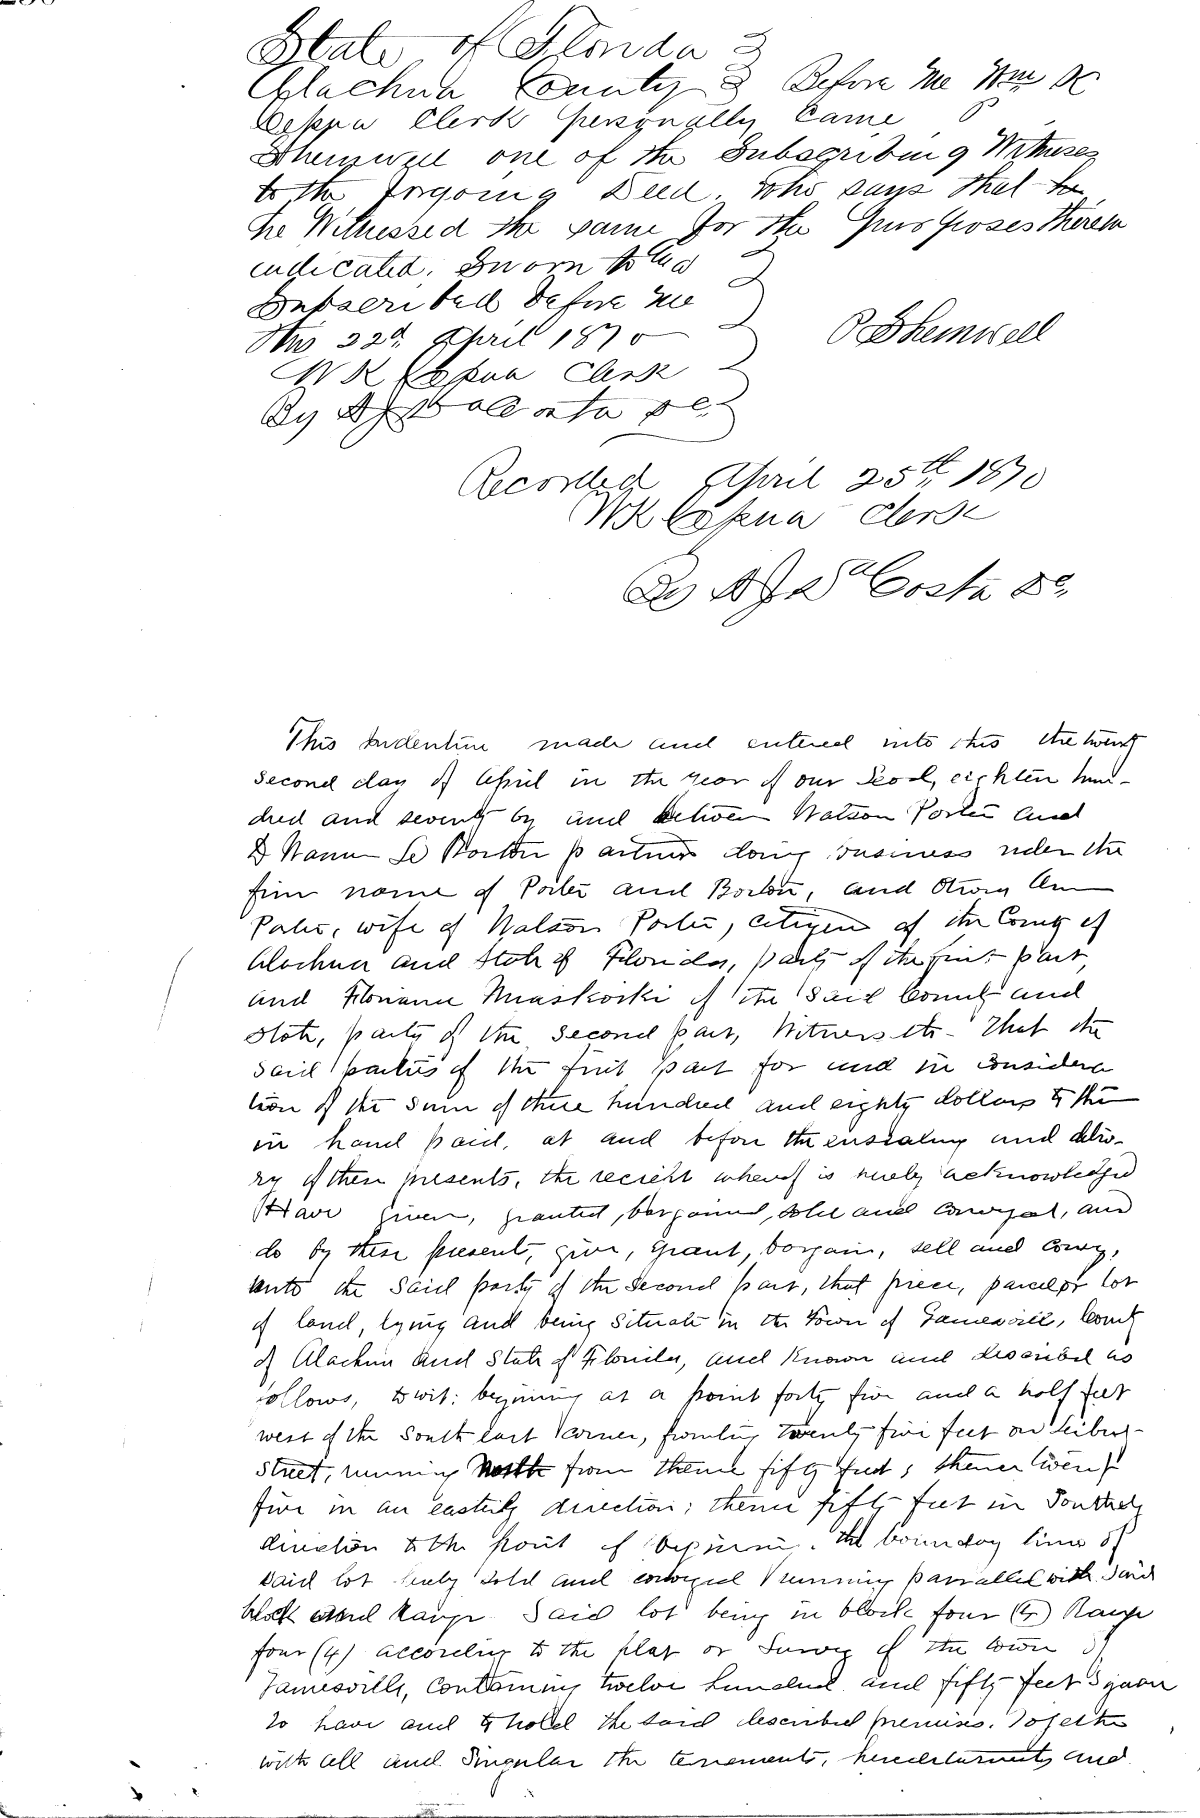 State of Florida
Alachua County Before me Wm K
Cessna Clerk personally came P
Shemwell one of the Subscribing Witnesses
to the forgoing Deed. who says that he
he Witnessed the same for the purposes therein
indicated. Sworn to and
Subscribed before me
this 22d April 1870
W K Cessna Clerk
By A J DaCosta DC.
P Shemwell
Recorded April 25th 1870
WK Cessna Clerk
By A J Da Costa DC.
This Indenture made and entered into this the twenty
second day of April in the year of our Lord, eighteen hun-
dred and seventy by and between Watson Porter and
partners doing business under the
firm name of Porter and Borton, and Ann
Porter, wife of Watson Porter, citizens of the County of
Alachua and State of Florida, party of the first part,
and of the said County and
State, party of the second part, Witnesseth- That the
said parties of the first part for and in considera
tion of the sum of three hundred and eighty dollars to them
in hand paid, at and before the ensealing and delive-
ry of these presents, the reciept whereof is hereby acknowledged
Have given, granted, bargained, sold and conveyed, and
do by these present, give, grant, bargain, sell and convey,
unto the said party of the second part, that piece, parcel or lot
of land, lying and being situate in the Town of Gainesville, County
of Alachua and State of Florida, and known and described as
follows, to wit: begining at a point forty five and a half feet
west of the South east corner, fronting twenty five feet on
Street, running North from thence fifty feet; thence twenty
five in an easterly direction; thence fifty feet in Southerly
direction to the point of begining. the bounday lines of
said lot hereby sold and conveyed running parralled with said
block and Range. Said lot being in block four (4) Range
four (4) according to the plat or Survey of the town of
Gainesville, containing twelve hundred and fifty feet Square
to have and to hold the said described premises. Together
with all and Singular the tenements, hereditaments and